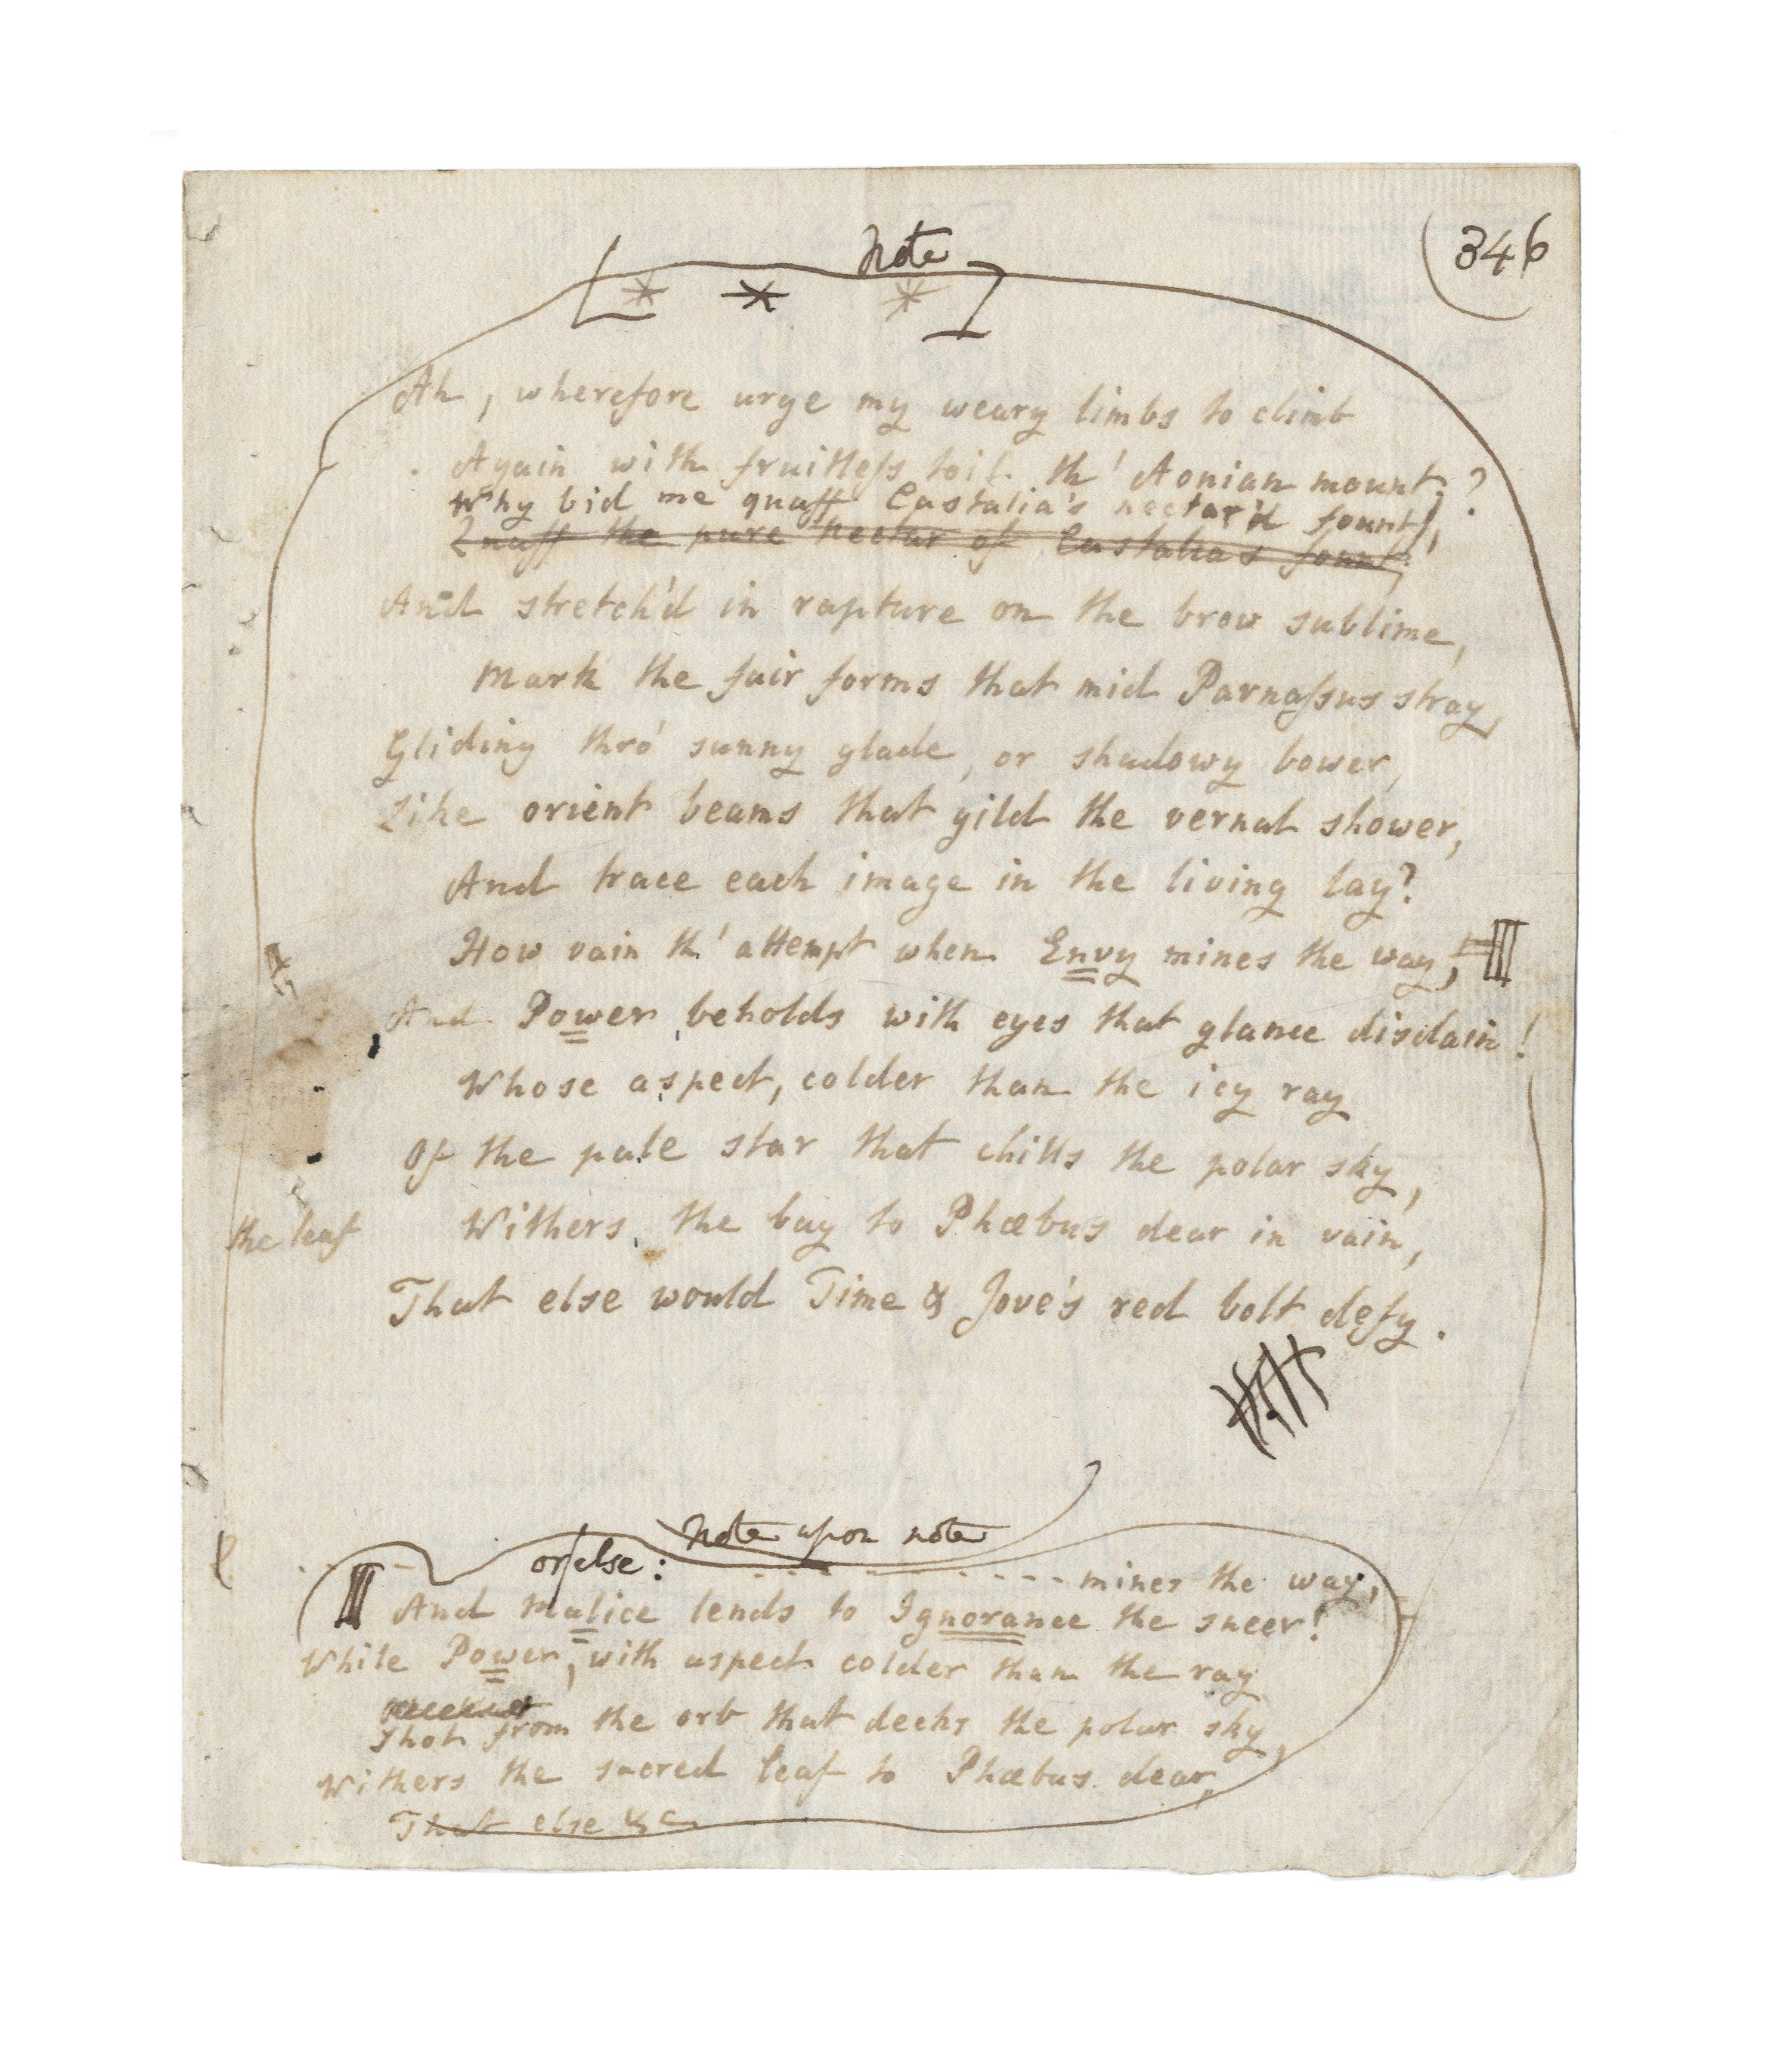 Note
346
[* * *]
Ah, wherefore urge my weary limbs to climb
Again with fruitleſs toil th' Aonian mount?
Why bid me quaff Castalia's nectar'd fount,
Quaff the pure nectar of Castalia's fount,
And stretch'd in rapture on the brow sublime,
Mark the fair forms that mid Parnaſsus stray,
Gliding thro' sunny glade, or shadowy bower,
Like orient beams that gild the vernal shower,
And trace each image in the living lay?
How vain th' attempt when Envy mines the way,
And Power beholds with eyes that glance disdain!
Whose aspect, colder than the icy ray
Of the pale star that chills the polar sky,
the leaf Withers the bay to Phœbus dear in vain,
That else would Time & Jove's red bolt defy.
Note upon note
or else: - - - - - mines the way,
And Malice lends to Ignorance the sneer!
While Power, with aspect colder than the ray
Shot from the orb that decks the polar sky,
Withers the sacred leaf to Phœbus dear,
That else &c